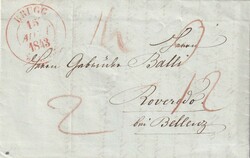 BRUGG
15
1843
Herrn
Herrn Gabriher Balli
Roveredo
bei Bellenz
12